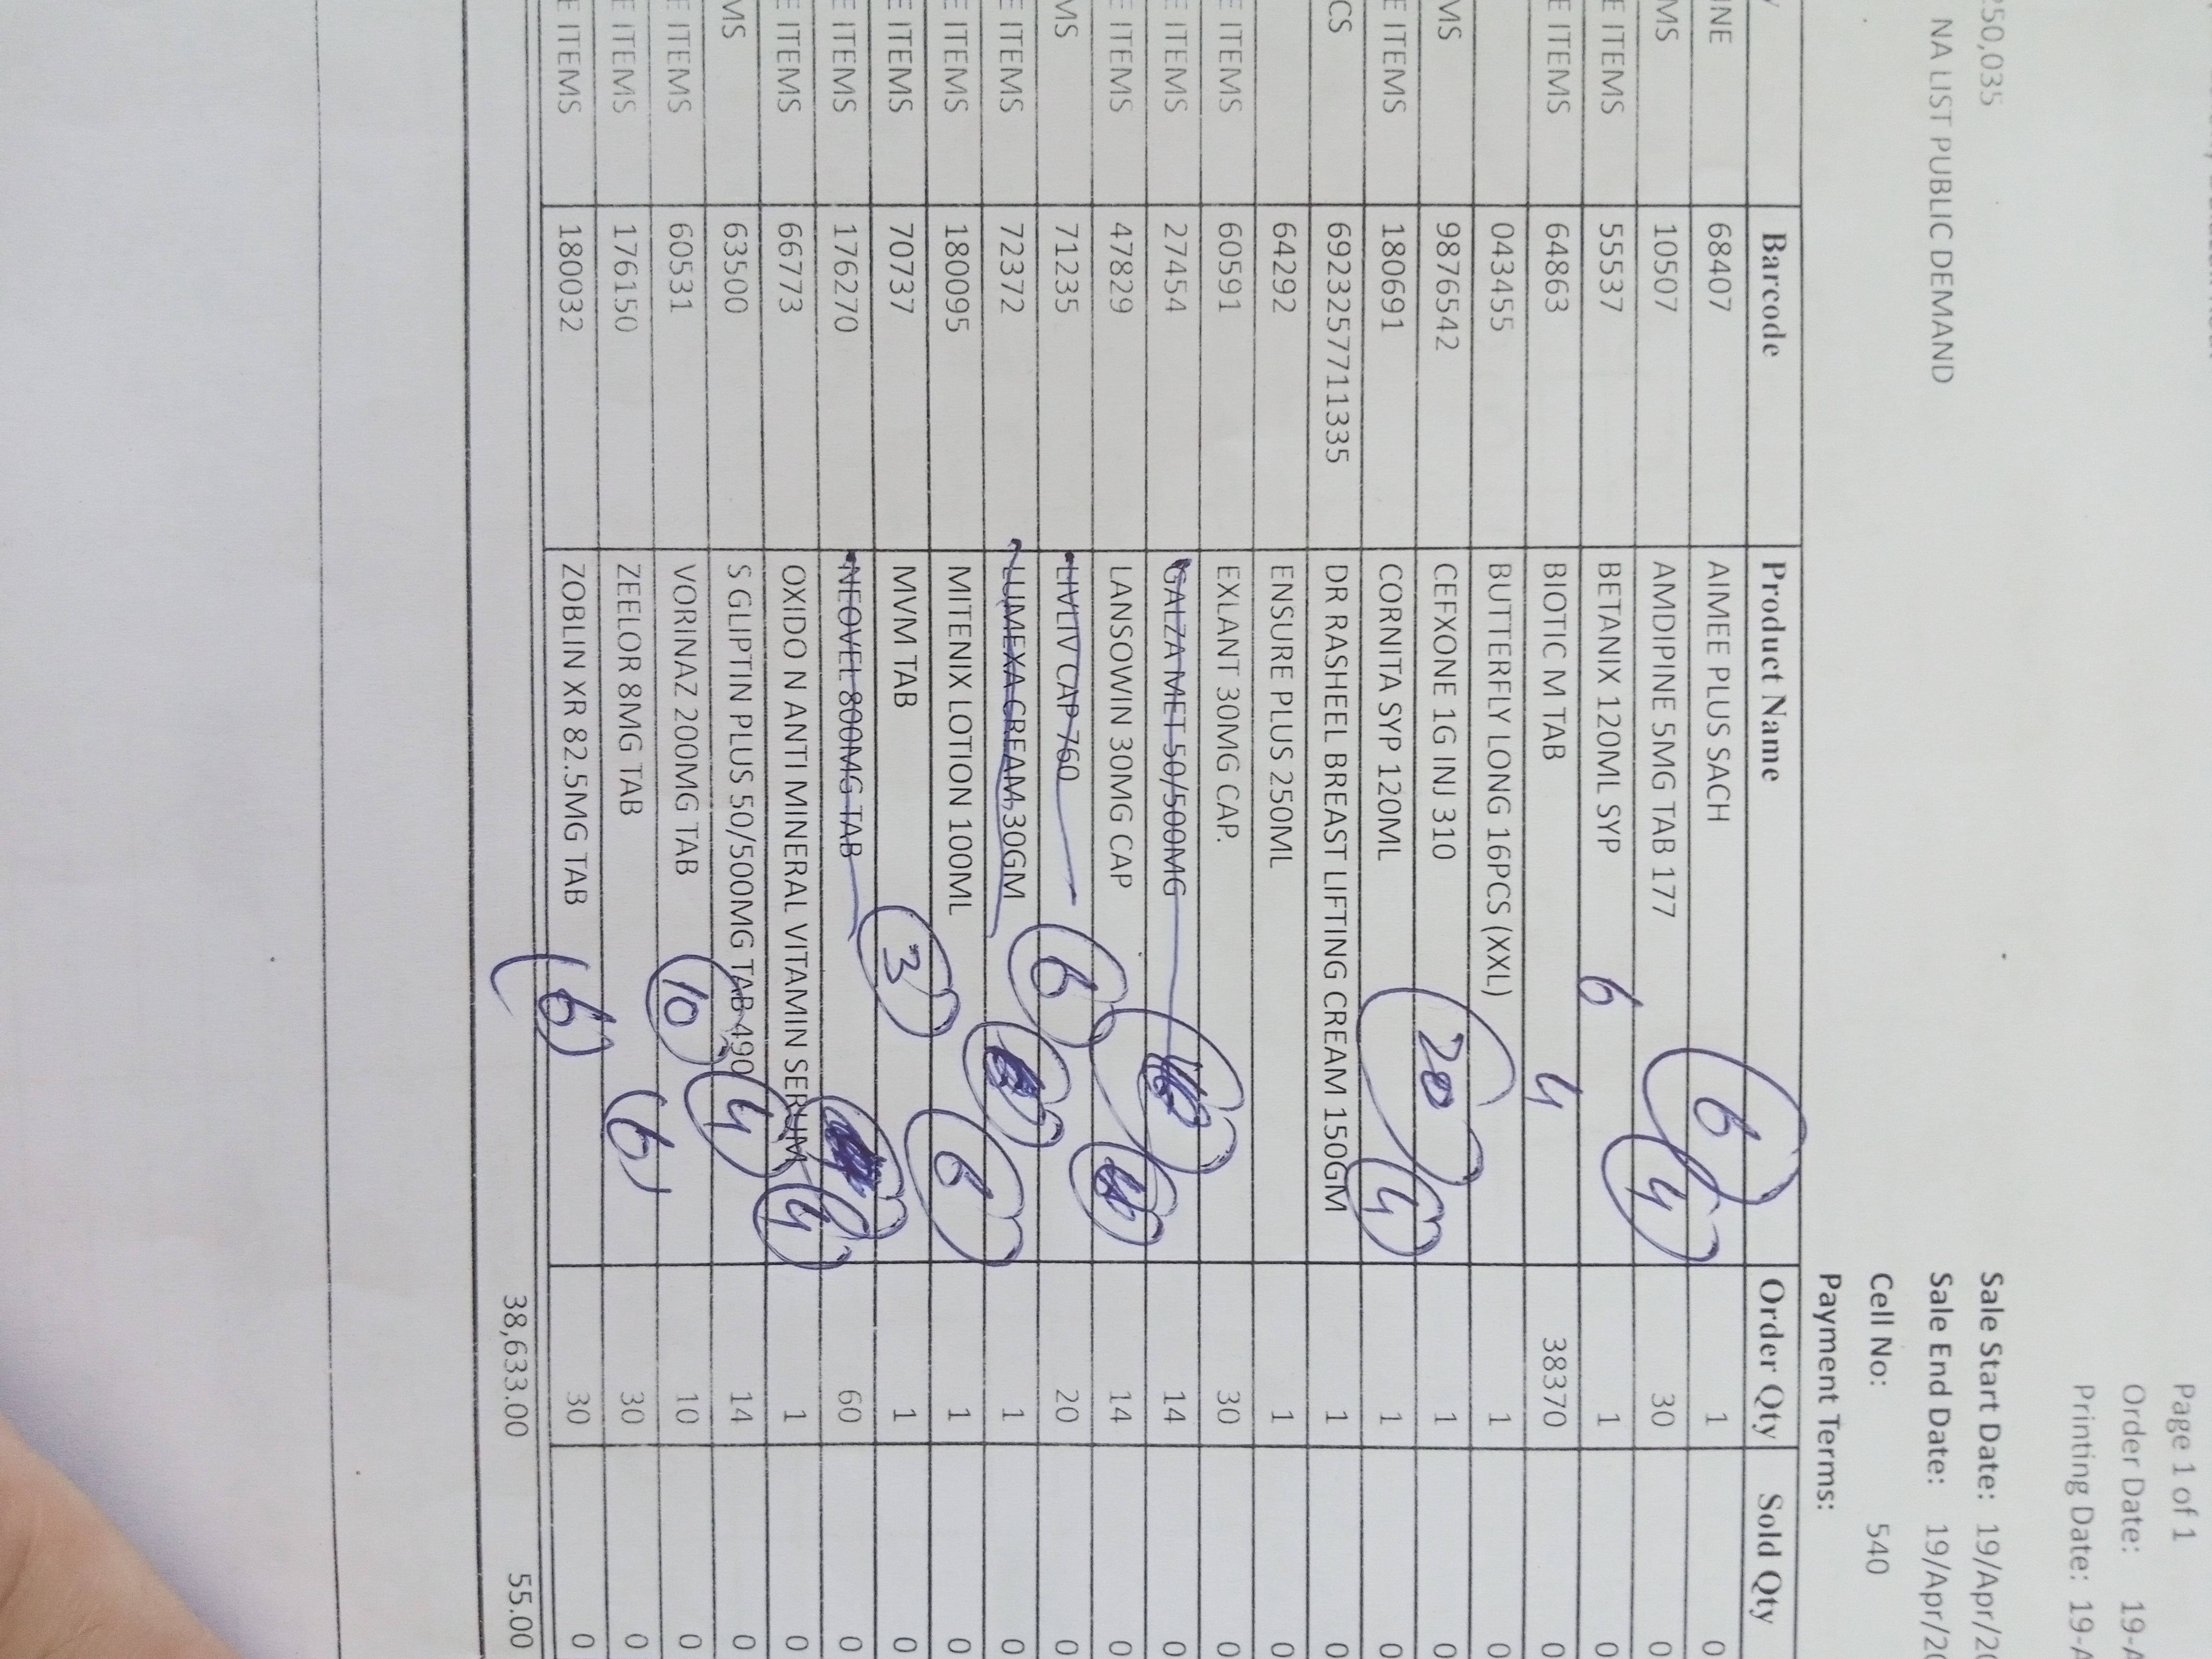 Page 1 of 1
Order Date: 19-A
Printing Date: 19-A
250,035 Sale Start Date: 19/Apr/20
NA LIST PUBLIC DEMAND Sale End Date: 19/Apr/20
Cell No: 540
Payment Terms:
Barcode Product Name Order Qty Sold Qty
INE 68407 AIMEE PLUS SACH 6 1 0
MS 10507 AMDIPINE 5MG TAB 177 4 30 0
E ITEMS 55537 BETANIX 120ML SYP 6 1 0
E ITEMS 64863 BIOTIC M TAB 4 38370 0
043455 BUTTERFLY LONG 16PCS (XXL) 1 0
MS 9876542 CEFXONE 1G INJ 310 20 1 0
E ITEMS 180691 CORNITA SYP 120ML 4 1 0
CS 6923225771​1335 DR RASHEEL BREAST LIFTING CREAM 150GM 1 0
64292 ENSURE PLUS 250ML 1 0
E ITEMS 60591 EXLANT 30MG CAP. 30 0
E ITEMS 27454 GALZA MET 50/500MG 14 0
E ITEMS 47829 LANSOWIN 30MG CAP 14 0
MS 71235 LIVLIV CAP 760 6 20 0
E ITEMS 72372 LUMEXA CREAM 30GM 1 0
E ITEMS 180095 MITENIX LOTION 100ML 6 1 0
E ITEMS 70737 MVM TAB 3 1 0
E ITEMS 176270 NEOVEL 800MG TAB 60 0
E ITEMS 66773 OXIDO N ANTI MINERAL VITAMIN SERUM 4 1 0
MS 63500 S GLIPTIN PLUS 50/500MG TAB 490 4 14 0
E ITEMS 60531 VORINAZ 200MG TAB 10 10 0
E ITEMS 176150 ZEELOR 8MG TAB 6 30 0
E ITEMS 180032 ZOBLIN XR 82.5MG TAB 6 30 0
38,633.00 55.00